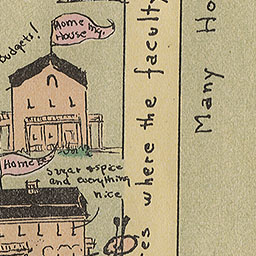 Home my
House
Budgets!
Home Ec
sugar & spice
and everything
nice
es where the faculty
Many Ho